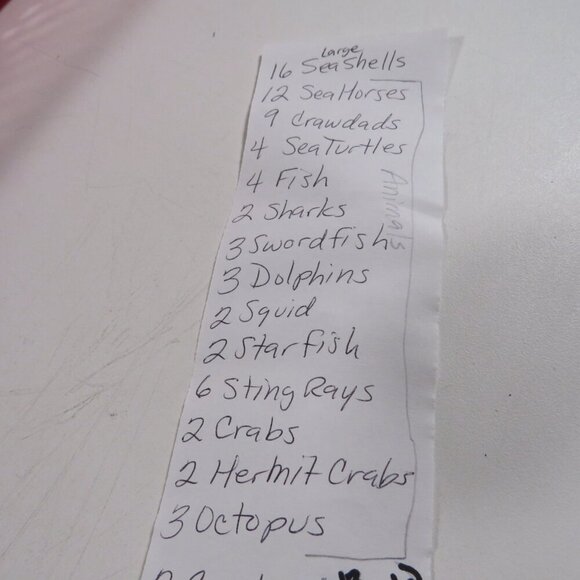 Large
16 Seashells
12 SeaHorses
9 Crawdads
4 SeaTurtles
4 Fish
2 Sharks
3 Swordfish
3 Dolphins
2 Squid
2 Starfish
6 Sting Rays
2 Crabs
2 Hermit Crabs
3 Octopus
Animals